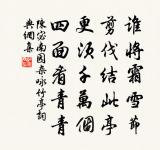 誰將霜雪節
剪伐結此亭
更須千萬個
四面看青青
陳宓南園雜咏竹亭詞
典網集